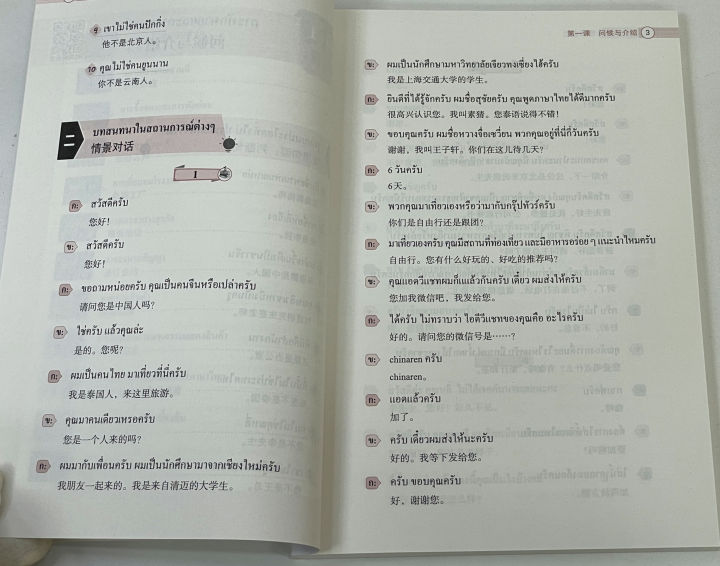 9 เขาไม่ใช่คนปักกิ่ง
他不是北京人。
10 คุณไม่ใช่คนยูนนาน
你不是云南人。
二
บทสนทนาในสถานการณ์ต่างๆ
情景对话
1
ก: สวัสดีครับ
您好!
ข: สวัสดีครับ
您好!
ก: ขอถามหน่อยครับ คุณเป็นคนจีนหรือเปล่าครับ
请问您是中国人吗?
ข: ใช่ครับ แล้วคุณล่ะ
是的。您呢?
ก: ผมเป็นคนไทย มาเที่ยวที่นี่ครับ
我是泰国人，来这里旅游。
ข: คุณมาคนเดียวเหรอครับ
您是一个人来的吗?
ก: ผมมากับเพื่อนครับ ผมเป็นนักศึกษามาจากเชียงใหม่ครับ
我朋友一起来的。我是来自清迈的大学生。
第一课 问候与介绍 3
ข: ผมเป็นนักศึกษามหาวิทยาลัยเจียวทงเซี่ยงไฮ้ครับ
我是上海交通大学的学生。
ก: ยินดีที่ได้รู้จักครับ ผมชื่อสุชัยครับ คุณพูดภาษาไทยได้ดีมากครับ
很高兴认识您。我叫素猜。您泰语说得不错!
ข: ขอบคุณครับ ผมชื่อหวางจื่อเซวียน พวกคุณอยู่ที่นี่กี่วันครับ
谢谢，我叫王子轩。你们在这儿待几天?
ก: 6 วันครับ
6天。
ข: พวกคุณมาเที่ยวเองหรือว่ามากับกรุ๊ปทัวร์ครับ
你们是自由行还是跟团?
ก: มาเที่ยวเองครับ คุณมีสถานที่ท่องเที่ยว และมีอาหารอร่อย ๆ แนะนำไหมครับ
自由行。您有什么好玩的、好吃的推荐吗?
ข: คุณแอดวีแชทผมก็แล้วกันครับ เดี๋ยว ผมส่งให้ครับ
您加我微信吧，我发给您。
ก: ได้ครับ ไม่ทราบว่า ไอดีวีแชทของคุณคือ อะไรครับ
好的。请问您的微信号是……?
ข: chinaren ครับ
chinaren。
ก: แอดแล้วครับ
加了。
ข: ครับ เดี๋ยวผมส่งให้นะครับ
好的。我等下发给您。
ก: ครับ ขอบคุณครับ
好，谢谢您。